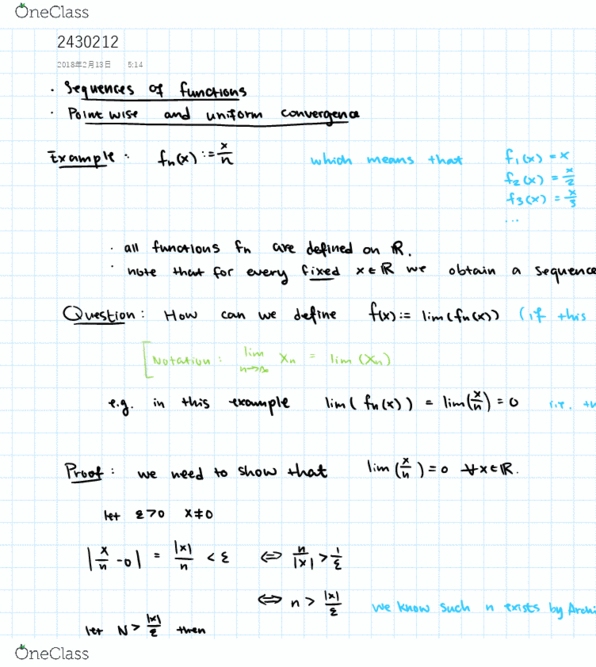 OneClass
2430212
2018年2月13日 5:14
· Sequences of functions
· Pointwise and uniform convergence
Example : fn(x) := x/n which means that f₁(x) = x
f₂(x) = x/2
f₃(x) = x/3
...
· all functions fn are defined on ℝ.
· note that for every fixed x∈ℝ we obtain a sequence
Question : How can we define f(x) := lim(fn(x)) (if this
[Notation : lim n→∞ xn = lim (xn)
e.g. in this example lim( fn(x) ) = lim(x/n) = 0 (i.e. th
Proof : we need to show that lim (x/n) = 0 ∀x∈ℝ.
let ε>0 x≠0
|x/n - 0| = |x|/n < ε ⇔ n/|x| > 1/ε
⇔ n > |x|/ε we know such n exists by Archi
let N > |x|/ε then
OneClass